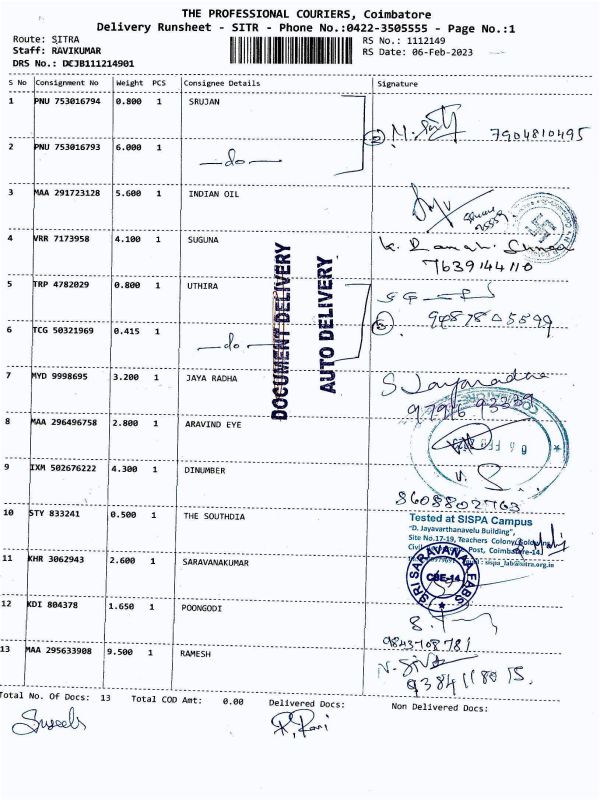 THE PROFESSIONAL COURIERS, Coimbatore
Delivery Runsheet - SITR - Phone No.:0422-3505555 - Page No.:1
Route: SITRA
RS No.: 1112149
Staff: RAVIKUMAR
RS Date: 06-Feb-2023
DRS No.: DCJB111214901
S No Consignment No Weight PCS Consignee Details Signature
1 PNU 753016794 0.800 1 SRUJAN
M. 7904810495
2 PNU 753016793 6.000 1 —do—
3 MAA 291723128 5.600 1 INDIAN OIL
4 VRR 7173958 4.100 1 SUGUNA
7639144110
5 TRP 4782029 0.800 1 UTHIRA
6 TCG 50321969 0.415 1 —do—
DOCUMENT DELIVERY
AUTO DELIVERY
7 MYD 9998695 3.200 1 JAYA RADHA S Jayaradha
97916 93339
8 MAA 296496758 2.800 1 ARAVIND EYE
9 IXM 502676222 4.300 1 DINUMBER
8608802763
10 STY 833241 0.500 1 THE SOUTHDIA
Tested at SISPA Campus
"D. Jayavarthanavelu Building",
Site No.17-19, Teachers Colony,
Post, Coimbatore-14
sispa_lab@sitra.org.in
11 KHR 3062943 2.600 1 SARAVANAKUMAR
SRI SARAVANAA FABS
CBE-14
12 KDI 804378 1.650 1 POONGODI
9843708781
13 MAA 295633908 9.500 1 RAMESH N. Siva
9384118015.
Total No. Of Docs: 13 Total COD Amt: 0.00 Delivered Docs: Non Delivered Docs:
R. Ravi